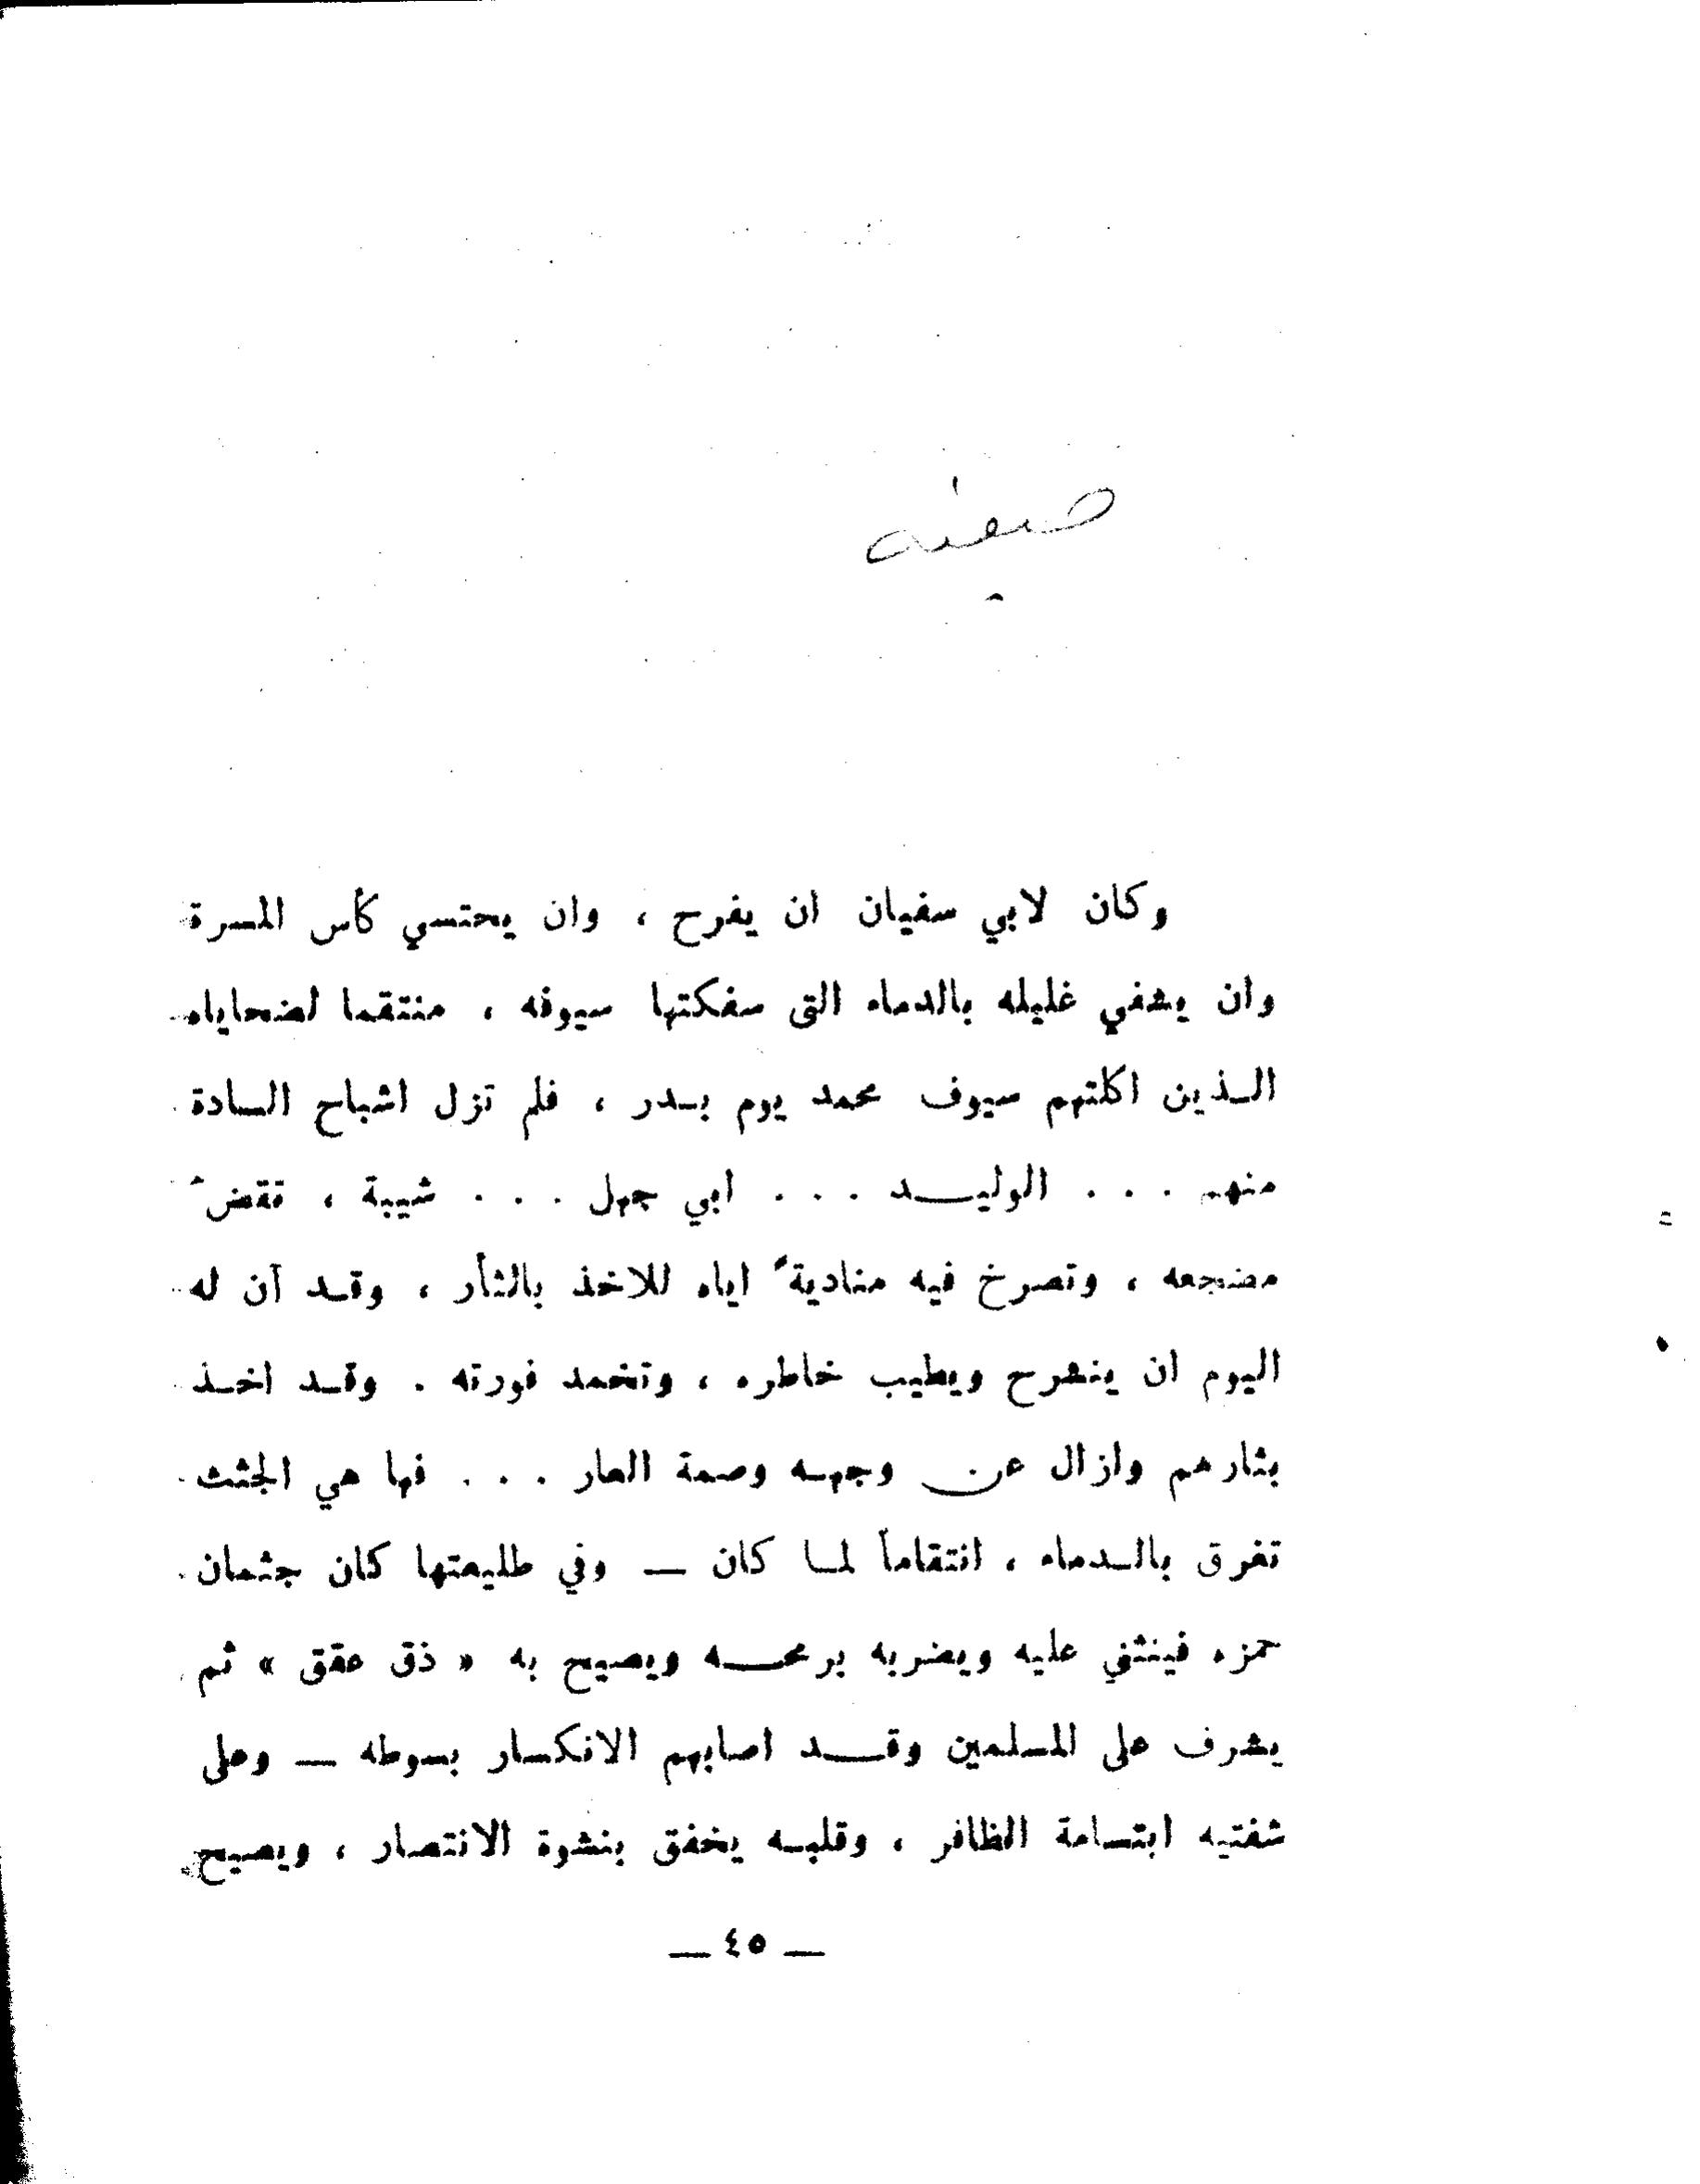 صفيه
وكان لابي سفيان ان يفرح ، وان يحتسي كأس المسرة
وان يشفي غليله بالدماء التى سفكتها سيوفه ، منتقما لضحاياه
الـذين اكلتهم سيوف محمد يوم بـدر ، فلم تزل اشباح السادة
منهم . . . الوليـــد . . . ابي جهل . . . شيبة ، تقضُ
مضجعه ، وتصرخ فيه مناديةً اياه للاخذ بالثأر ، وقـد آن له
اليوم ان ينشرح ويطيب خاطره ، وتخمد فورته . وقـد اخـذ
بثارهم وازال عن وجهـه وصمة العار . . . فها هي الجثث
تغرق بالـدماء ، انتقاماً لمـا كان — وفي طليعتها كان جثمان
حمزه فينثني عليه ويضربه برمحـــه ويصيح به « ذق عقق » ثم
يشرف على المسلمين وقـــد اصابهم الانكسار بسوطه — وعلى
شفتيه ابتسامة الظافر ، وقلبـه يخفق بنشوة الانتصار ، ويصيح
— ٤٥ —